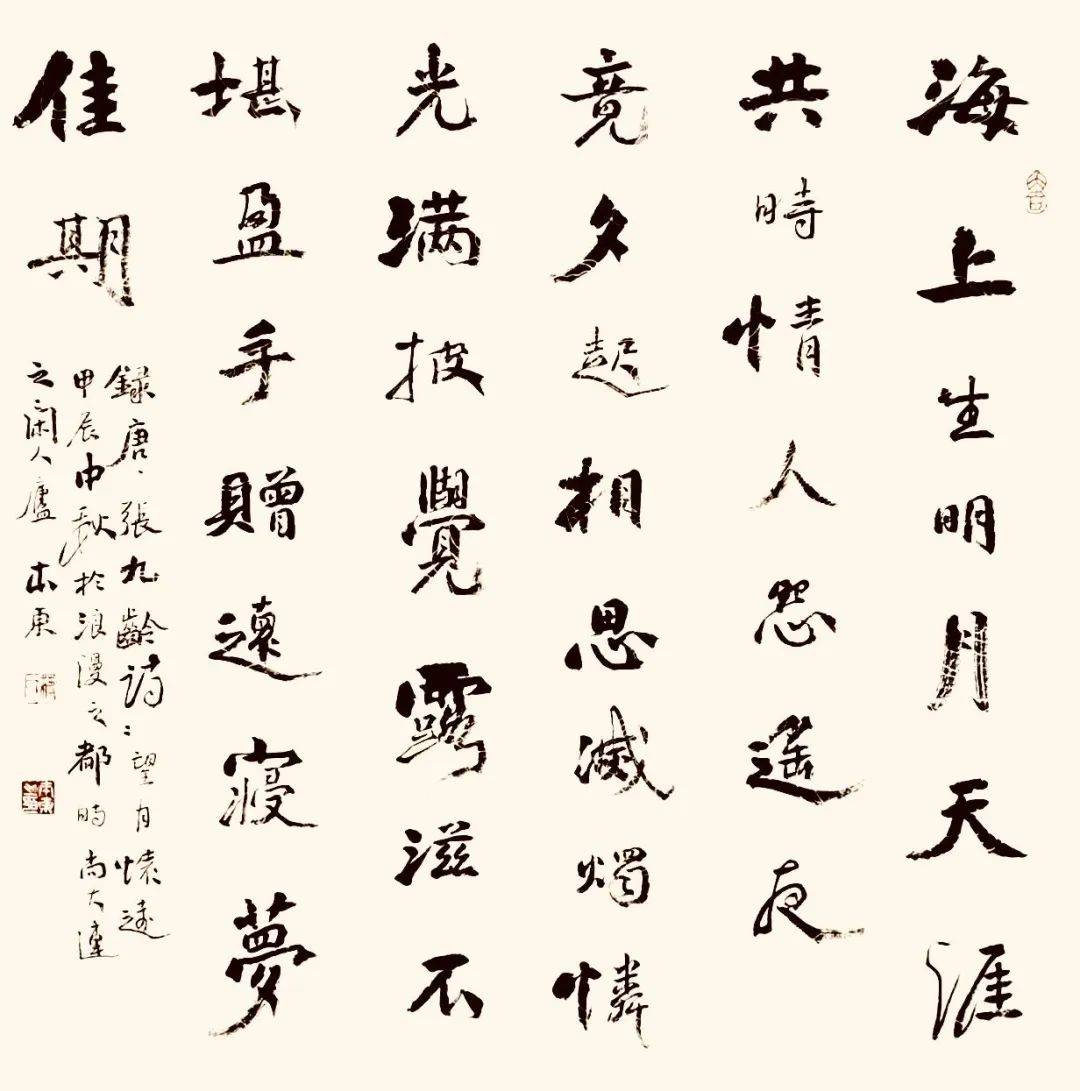 海上生明月天涯
共時情人怨遥夜
竟夕起相思滅燭憐
光满披覺露滋不
堪盈手贈還寢夢
佳期
録唐、張九齡詩：望月懷遠
甲辰中秋於浪漫之都時尚大連
之闲人廬 本東